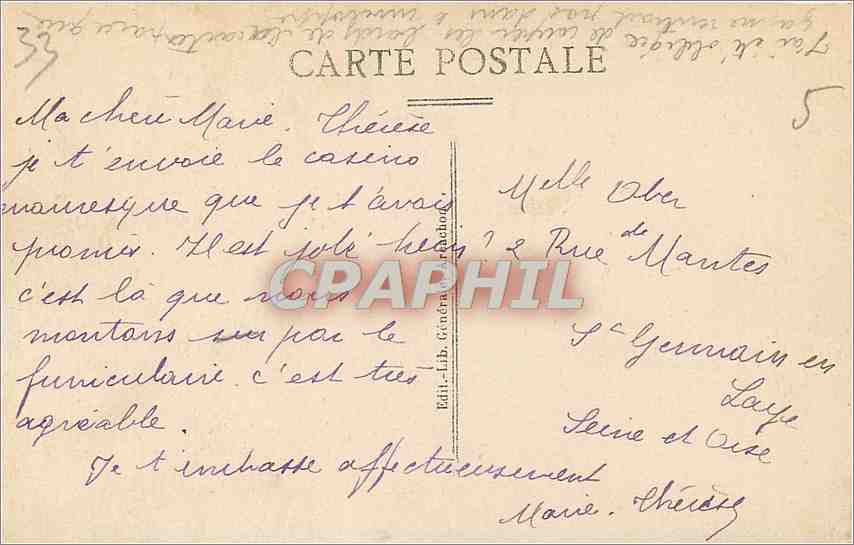 J'ai été obligée de couper les bords de la carte parce que
ça ne rentrait pas dans l'enveloppe
CARTE POSTALE
5
Ma chère Marie. Thérèse
je t'envoie le casino
mauresque que je t'avais
promis. Il est joli hein?
c'est là que nous
montons par le
funiculaire. c'est très
agréable.
Je t'embrasse affectueusement
Marie. Thérèse
Edit.-Lib. Générale, Arcachon
Melle Ober
2 Rue de Mantes
St Germain en
Laye
Seine et Oise
CPAPHIL